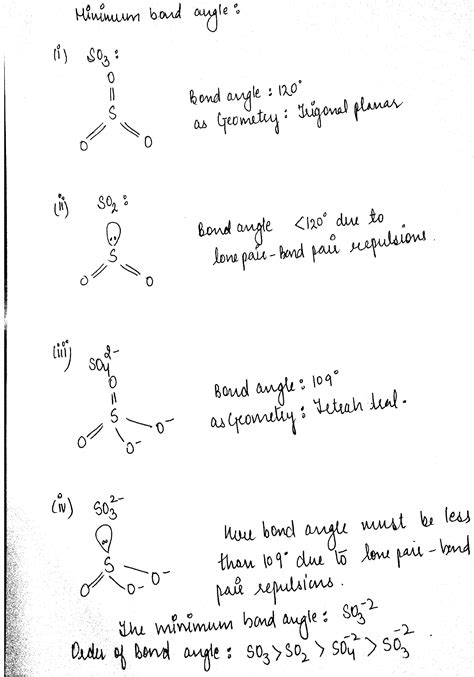 Minimum bond angle:
(i) SO3:
O
S
O O
Bond angle : 120°
as Geometry : Trigonal planar
(ii) SO2:
S
O O
Bond angle <120° due to
lone pair-Bond pair repulsions.
(iii) SO4^2-
O
S
O O- O-
Bond angle : 109°
as Geometry : Tetrahedral.
(iv) SO3^2-
S
O O- O-
Here bond angle must be less
than 109° due to lone pair-bond
pair repulsions.
The minimum bond angle : SO3^-2
Order of Bond angle : SO3 > SO2 > SO4^-2 > SO3^-2.